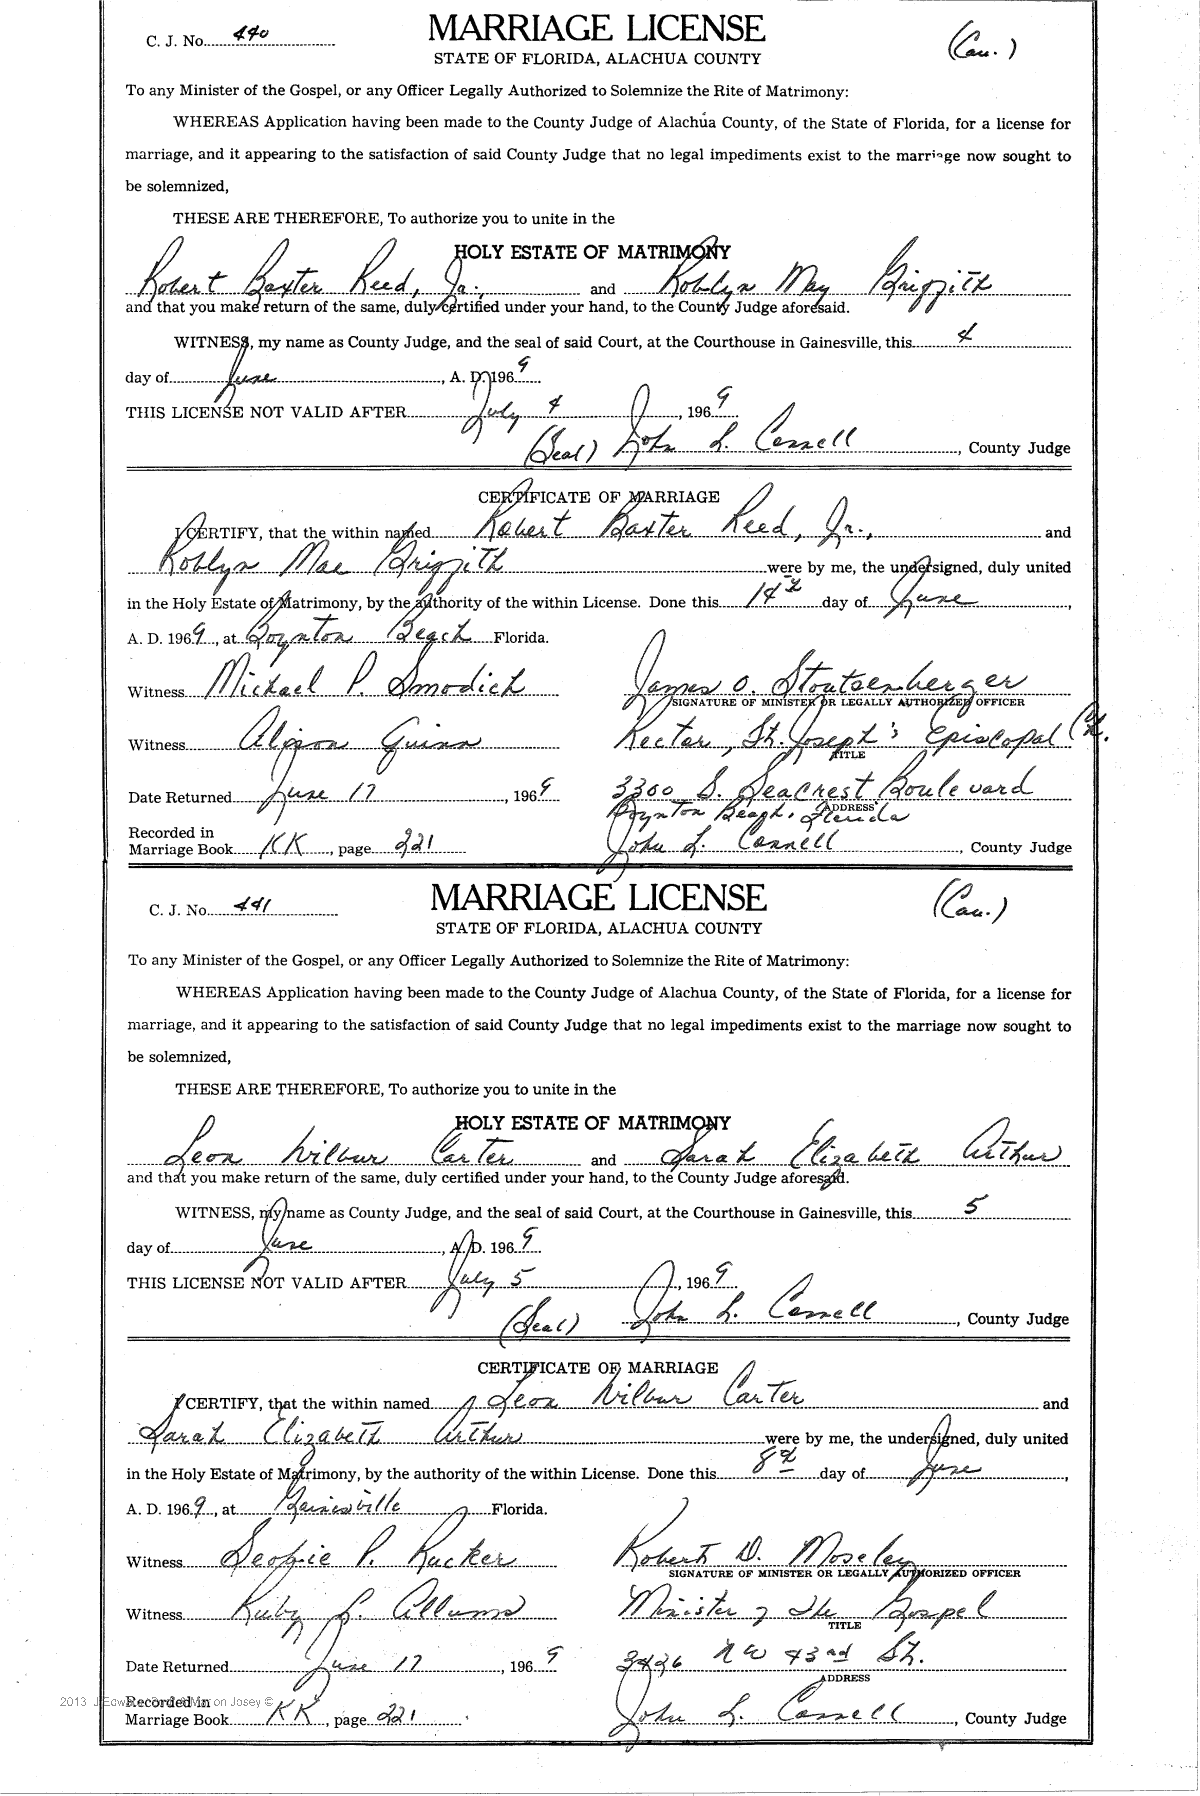 C. J. No. 440 MARRIAGE LICENSE (Cau.)
STATE OF FLORIDA, ALACHUA COUNTY
To any Minister of the Gospel, or any Officer Legally Authorized to Solemnize the Rite of Matrimony:
WHEREAS Application having been made to the County Judge of Alachua County, of the State of Florida, for a license for
marriage, and it appearing to the satisfaction of said County Judge that no legal impediments exist to the marriage now sought to
be solemnized,
THESE ARE THEREFORE, To authorize you to unite in the
HOLY ESTATE OF MATRIMONY
Robert Baxter Reed, Jr., and Roblyn May Griffith
and that you make return of the same, duly certified under your hand, to the County Judge aforesaid.
WITNESS, my name as County Judge, and the seal of said Court, at the Courthouse in Gainesville, this 4
day of June, A. D. 1969
THIS LICENSE NOT VALID AFTER July 4, 1969
(Seal) John L. Connell, County Judge
CERTIFICATE OF MARRIAGE
I CERTIFY, that the within named Robert Baxter Reed, Jr., and
Roblyn Mae Griffith were by me, the undersigned, duly united
in the Holy Estate of Matrimony, by the authority of the within License. Done this 14th day of June,
A. D. 1969, at Boynton Beach Florida.
Witness Michael P. Smodich James O. Stoutsenberger
SIGNATURE OF MINISTER OR LEGALLY AUTHORIZED OFFICER
Witness Alison Guinn Rector, St. Joseph's Episcopal Ch.
TITLE
Date Returned June 17, 1969 3300 S. Seacrest Boulevard
ADDRESS
Boynton Beach, Florida
Recorded in
Marriage Book KK, page 221 John L. Connell, County Judge
C. J. No. 441 MARRIAGE LICENSE (Cau.)
STATE OF FLORIDA, ALACHUA COUNTY
To any Minister of the Gospel, or any Officer Legally Authorized to Solemnize the Rite of Matrimony:
WHEREAS Application having been made to the County Judge of Alachua County, of the State of Florida, for a license for
marriage, and it appearing to the satisfaction of said County Judge that no legal impediments exist to the marriage now sought to
be solemnized,
THESE ARE THEREFORE, To authorize you to unite in the
HOLY ESTATE OF MATRIMONY
Leon Wilbur Carter and Sarah Elizabeth Arthur
and that you make return of the same, duly certified under your hand, to the County Judge aforesaid.
WITNESS, my name as County Judge, and the seal of said Court, at the Courthouse in Gainesville, this 5
day of June, A. D. 1969
THIS LICENSE NOT VALID AFTER July 5, 1969
(Seal) John L. Connell, County Judge
CERTIFICATE OF MARRIAGE
I CERTIFY, that the within named Leon Wilbur Carter and
Sarah Elizabeth Arthur were by me, the undersigned, duly united
in the Holy Estate of Matrimony, by the authority of the within License. Done this 8th day of June,
A. D. 1969, at Gainesville Florida.
Witness P. Rucker Robert D. Moseley
SIGNATURE OF MINISTER OR LEGALLY AUTHORIZED OFFICER
Witness Ruby L. Allums Minister of the Gospel
TITLE
Date Returned June 17, 1969 3426 NW 43rd St.
ADDRESS
Recorded in
2013 Josey ©
Marriage Book KK, page 221 John L. Connell, County Judge